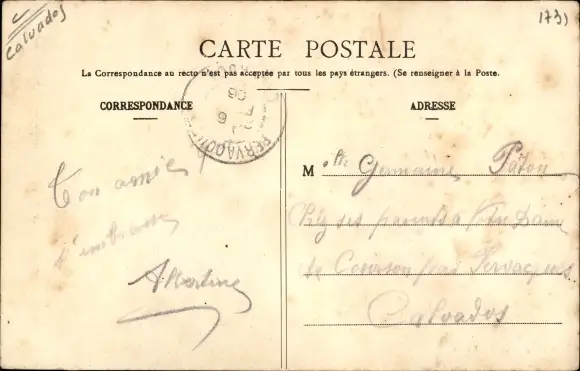 Calvados
1731
CARTE POSTALE
La Correspondance au recto n'est pas acceptée par tous les pays étrangers. (Se renseigner à la Poste.
CORRESPONDANCE
ADRESSE
FERVACQUES
Ton amie
t'embrasse
Albertine
M lle Germaine Patou
Chez ses parents à Notre Dame
de Courson par Fervacques
Calvados